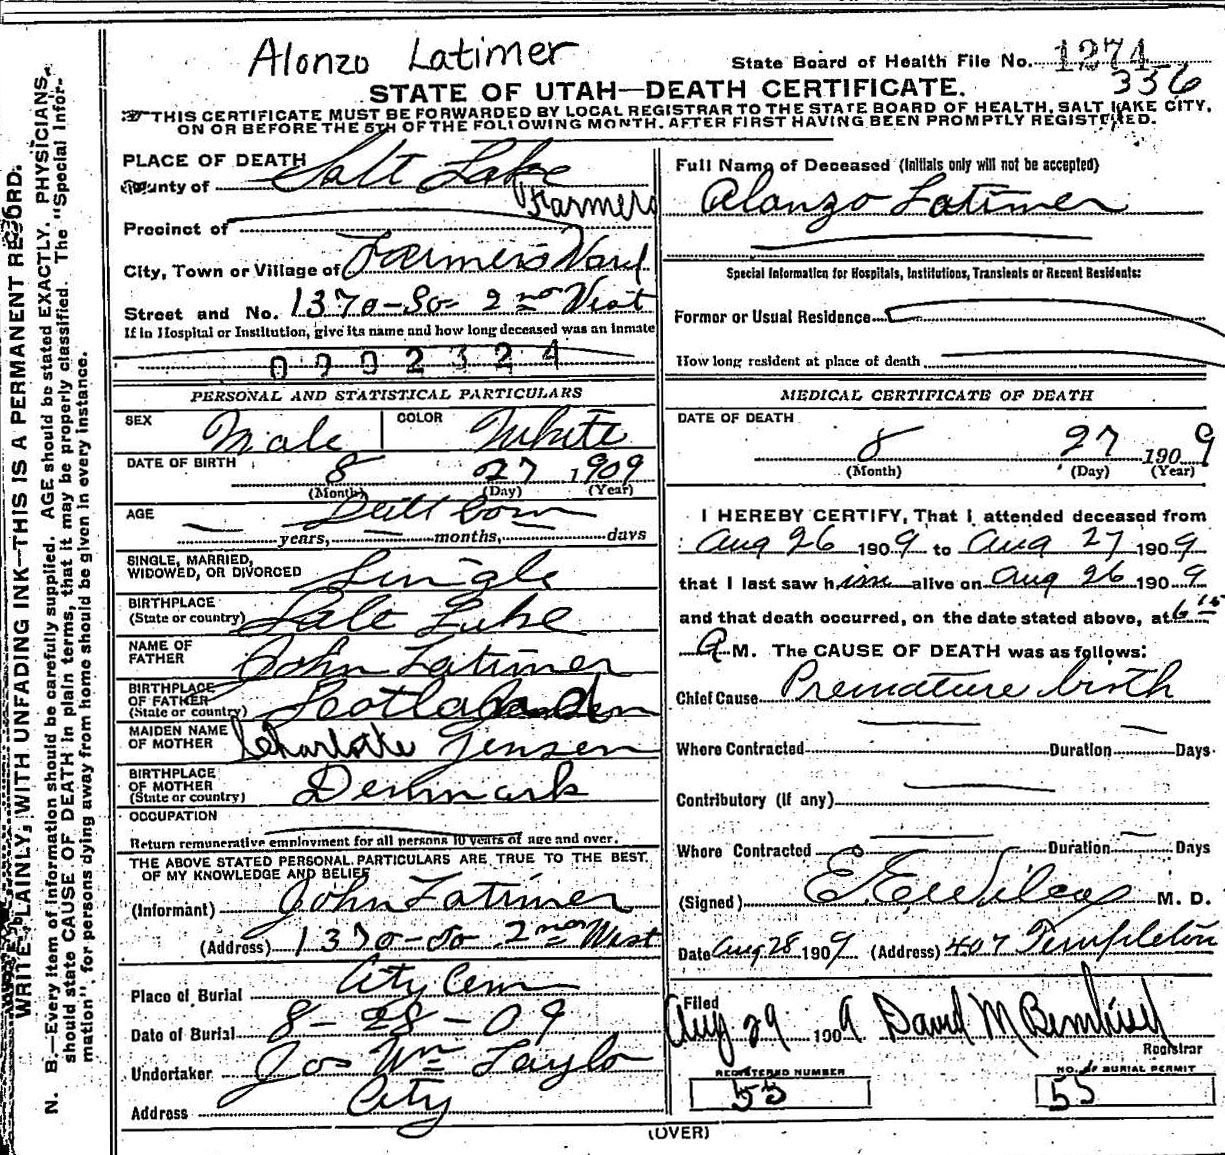 Alonzo Latimer
State Board of Health File No. 1274
336
STATE OF UTAH—DEATH CERTIFICATE.
THIS CERTIFICATE MUST BE FORWARDED BY LOCAL REGISTRAR TO THE STATE BOARD OF HEALTH, SALT LAKE CITY,
ON OR BEFORE THE 5TH OF THE FOLLOWING MONTH. AFTER FIRST HAVING BEEN PROMPTLY REGISTERED.
PLACE OF DEATH
County of Salt Lake
Farmers
Precinct of
City, Town or Village of Farmers Ward
Street and No. 1370-So- 2nd West
If in Hospital or Institution, give its name and how long deceased was an inmate
0902324
PERSONAL AND STATISTICAL PARTICULARS
SEX Male COLOR White
DATE OF BIRTH 8 27 1909
(Month) (Day) (Year)
AGE Still born
years, months, days
SINGLE, MARRIED,
WIDOWED, OR DIVORCED Single
BIRTHPLACE
(State or country) Salt Lake
NAME OF
FATHER John Latimer
BIRTHPLACE
OF FATHER
(State or country) Scotland
MAIDEN NAME
OF MOTHER Charlotte Jensen
BIRTHPLACE
OF MOTHER
(State or country) Denmark
OCCUPATION
Return remunerative employment for all persons 10 years of age and over.
THE ABOVE STATED PERSONAL PARTICULARS ARE TRUE TO THE BEST
OF MY KNOWLEDGE AND BELIEF
(Informant) John Latimer
(Address) 1370-So 2nd West
Place of Burial City Cem
Date of Burial 8-28-09
Undertaker Jos Wm Taylor
Address City
Full Name of Deceased (Initials only will not be accepted)
Alonzo Latimer
Special Information for Hospitals, Institutions, Transients or Recent Residents:
Former or Usual Residence
How long resident at place of death
MEDICAL CERTIFICATE OF DEATH
DATE OF DEATH
8 27 1909
(Month) (Day) (Year)
I HEREBY CERTIFY, That I attended deceased from
Aug 26 1909 to Aug 27 1909
that I last saw him alive on Aug 26 1909
and that death occurred, on the date stated above, at 6 15
A M. The CAUSE OF DEATH was as follows:
Chief Cause Premature birth
Where Contracted Duration Days
Contributory (if any)
Where Contracted Duration Days
(Signed) E. E. Wilcox M. D.
Date Aug 28 1909 (Address) 407 Templeton
Filed
Aug 29 1909 David M
Registrar
REGISTERED NUMBER NO. OF BURIAL PERMIT
55 55
(OVER)
WRITE PLAINLY, WITH UNFADING INK—THIS IS A PERMANENT RECORD.
N. B.—Every item of information should be carefully supplied. AGE should be stated EXACTLY. PHYSICIANS,
should state CAUSE OF DEATH in plain terms, that it may be properly classified. The "Special Infor-
mation", for persons dying away from home should be given in every instance.